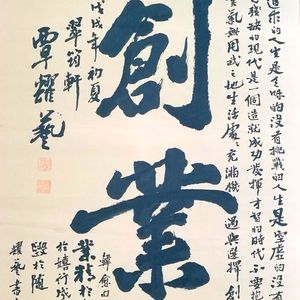 求的人生是乏味的沒有挑戰的人生是空虛的沒有
殘缺的現代是一個造就成功發揮才智的時代不要抱
氣與用武之地生活處處充滿機遇與選擇創
創業
韓愈曰
業精於
於嬉行成
毀於隨
耀藝書
戊戌年初夏
翠筠軒
覃耀藝